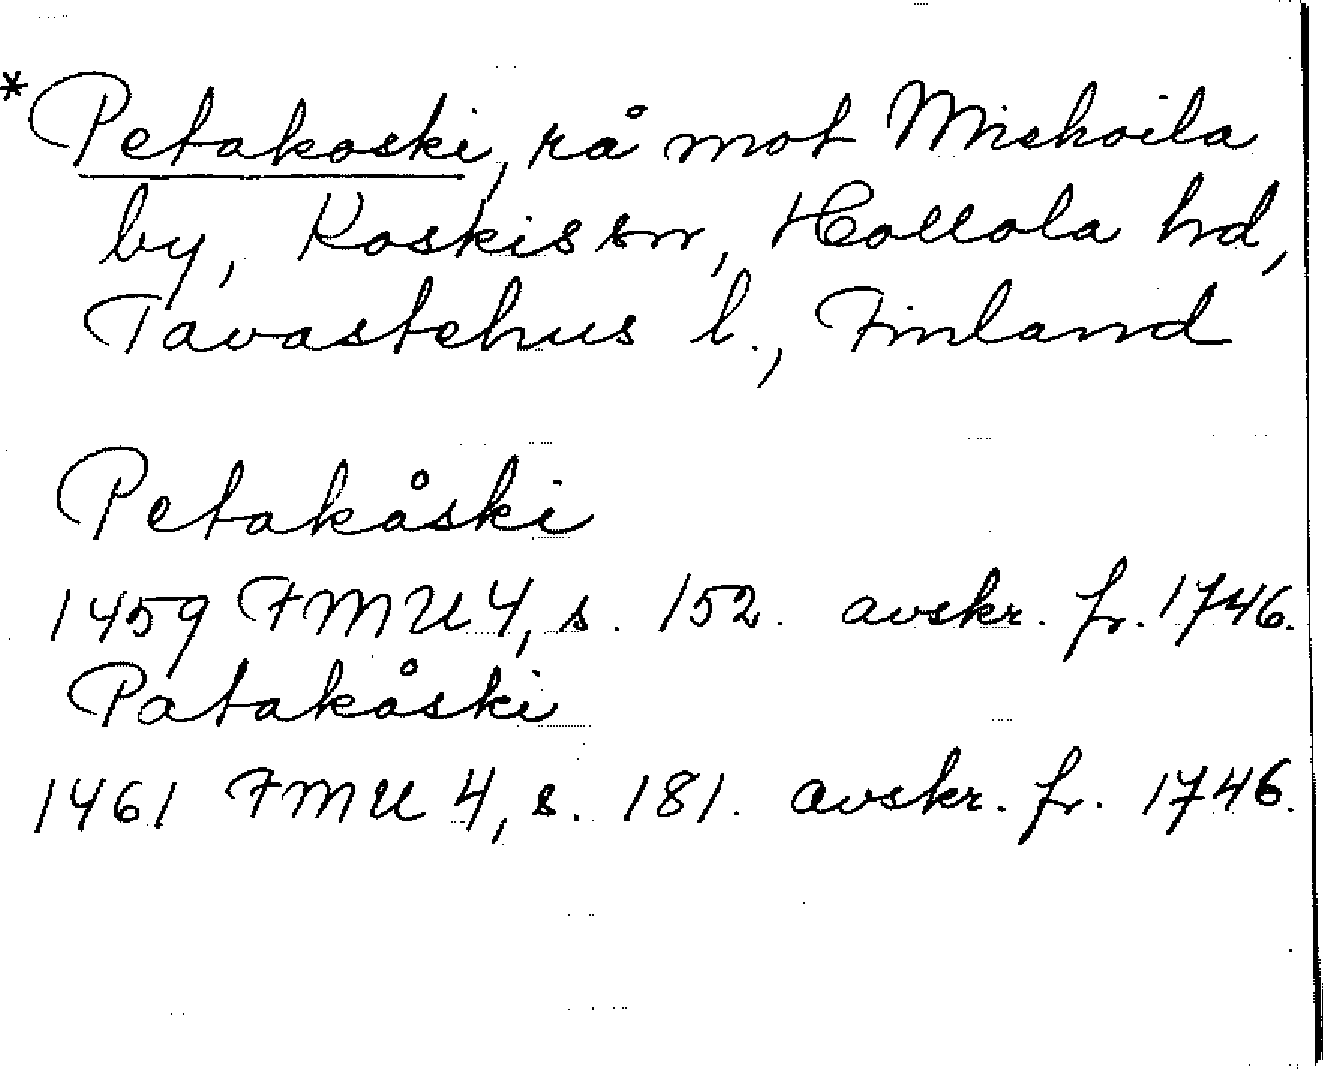 *Petakoski, rå mot Miekoila
by, Koskis sn, Hollola hd,
Tavastehus l., Finland
Petakåski
1459 FMU 4, s. 152. avskr. fr. 1746.
Patakåski
1461 FMU 4, s. 181. avskr. fr. 1746.